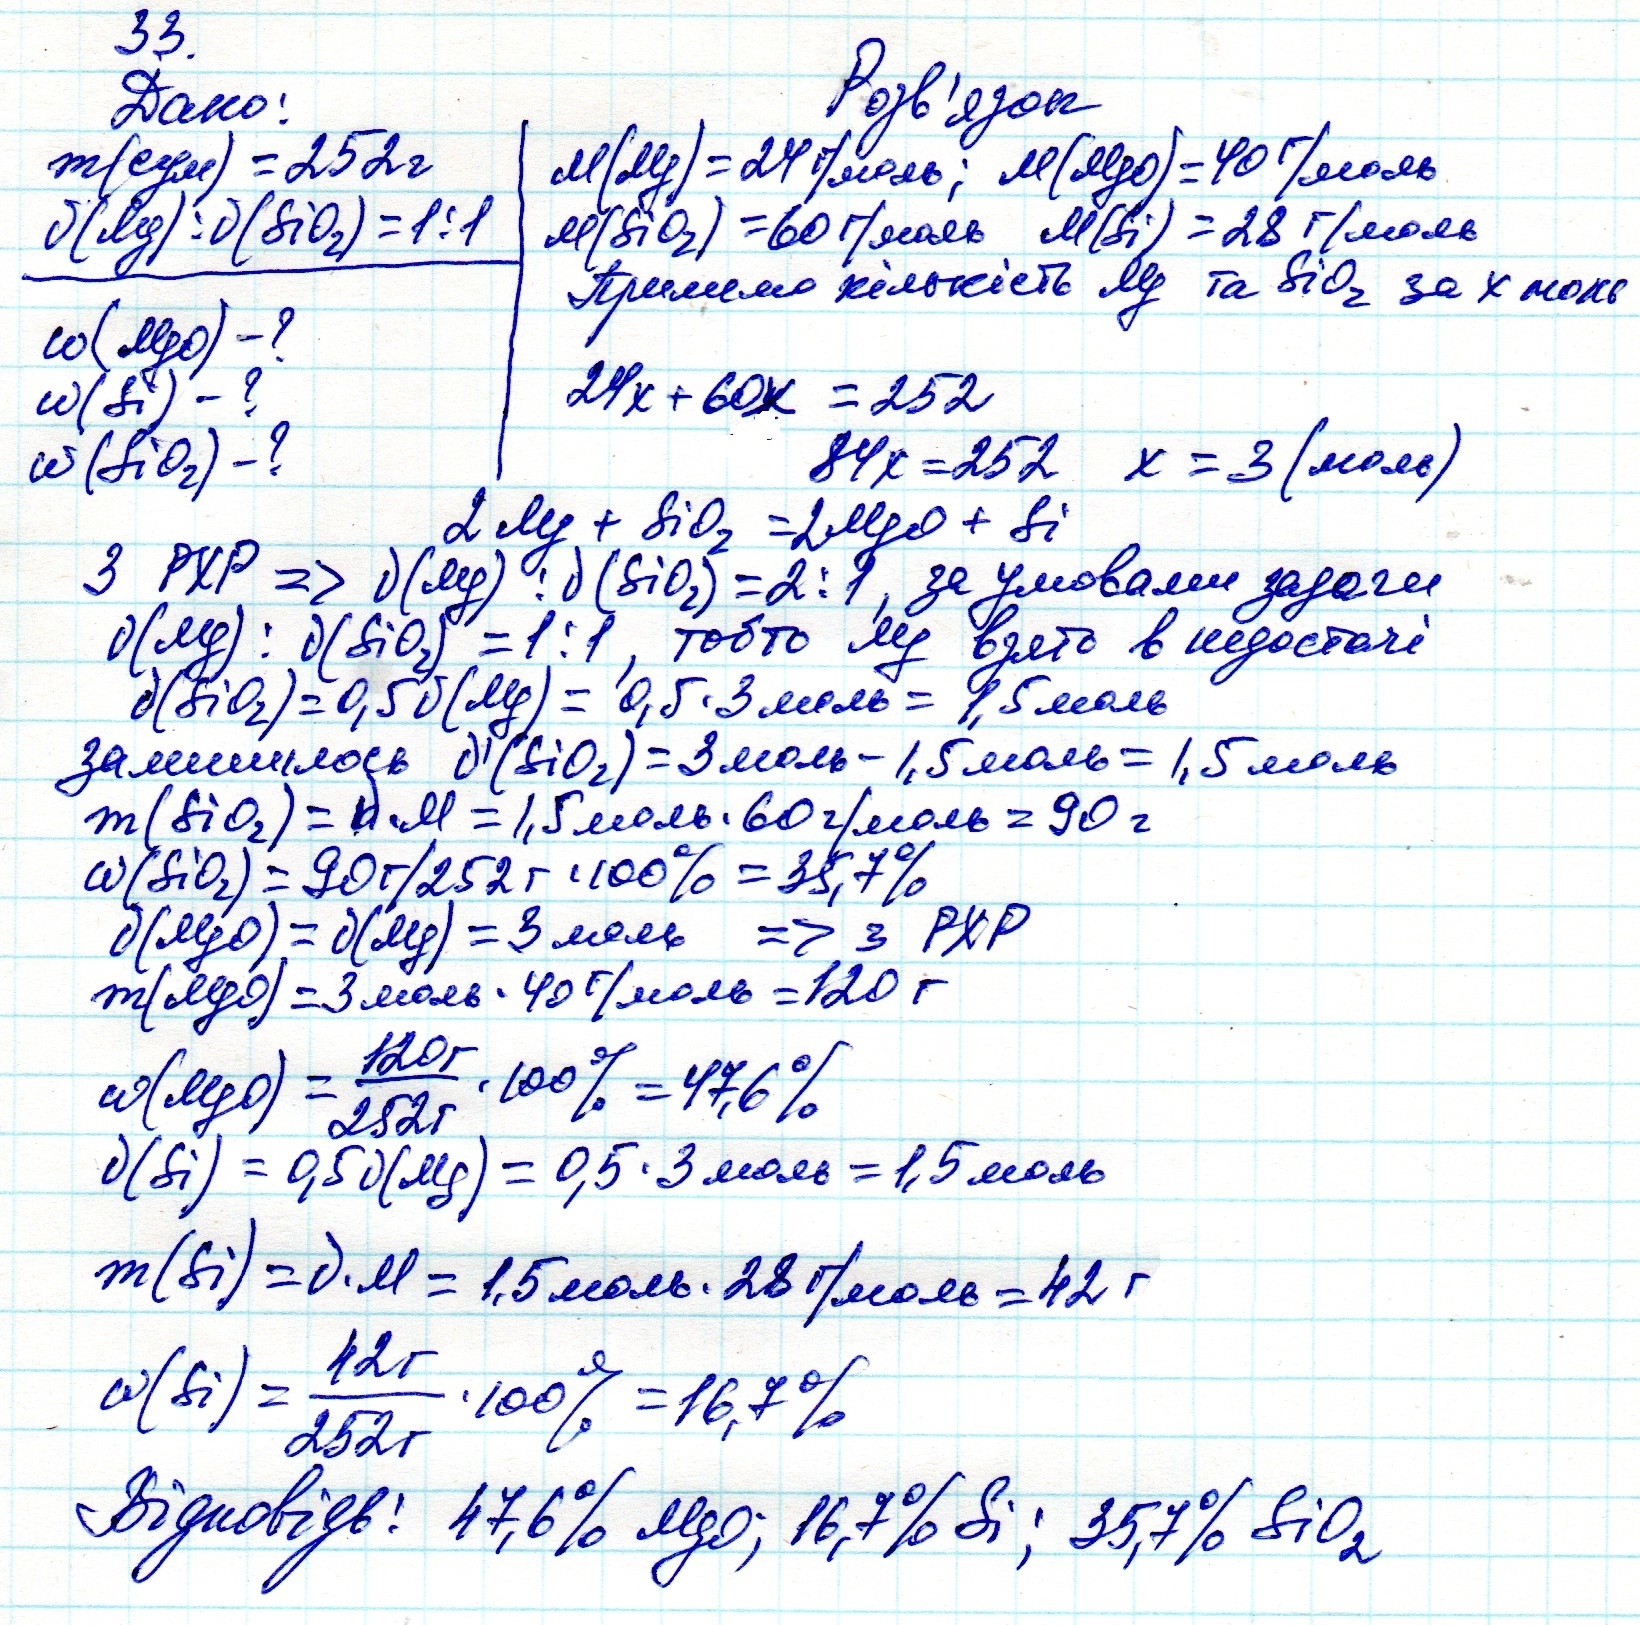 33.
Дано:
m(сум) = 252г
ν(Mg) : ν(SiO₂) = 1:1
ω(MgO) - ?
ω(Si) - ?
ω(SiO₂) - ?
Розв'язок
M(Mg) = 24 г/моль; M(MgO) = 40 г/моль
M(SiO₂) = 60 г/моль M(Si) = 28 г/моль
Приймемо кількість Mg та SiO₂ за x моль
24x + 60x = 252
84x = 252 x = 3 (моль)
2Mg + SiO₂ = 2MgO + Si
З РХР => ν(Mg) : ν(SiO₂) = 2:1, за умовами задачи
ν(Mg) : ν(SiO₂) = 1:1, тобто Mg взято в недостачі
ν(SiO₂) = 0,5ν(Mg) = 0,5·3 моль = 1,5 моль
залишилось ν'(SiO₂) = 3 моль - 1,5 моль = 1,5 моль
m(SiO₂) = ν·M = 1,5 моль·60 г/моль = 90 г
ω(SiO₂) = 90г/252г ·100% = 35,7%
ν(MgO) = ν(Mg) = 3 моль => з РХР
m(MgO) = 3 моль·40 г/моль = 120 г
ω(MgO) = 120г/252г ·100% = 47,6%
ν(Si) = 0,5ν(Mg) = 0,5·3 моль = 1,5 моль
m(Si) = ν·M = 1,5 моль·28 г/моль = 42 г
ω(Si) = 42г/252г ·100% = 16,7%
Відповідь: 47,6% MgO; 16,7% Si; 35,7% SiO₂